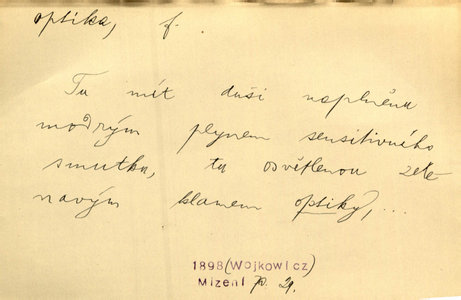 optika, f.
Tu mít duši naplněnu
modrým plynem sensitivního
smutku, tu osvětlenou zele-
navým klamem optiky, ...
1898 (Wojkowicz)
Mizení 70. 29.